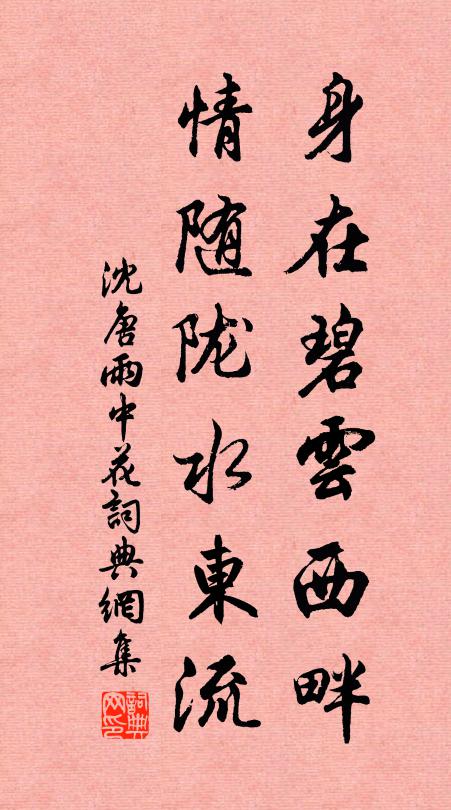 身在碧雲西畔
情随陇水東流
沈唐雨中花詞典網集
詞典网印